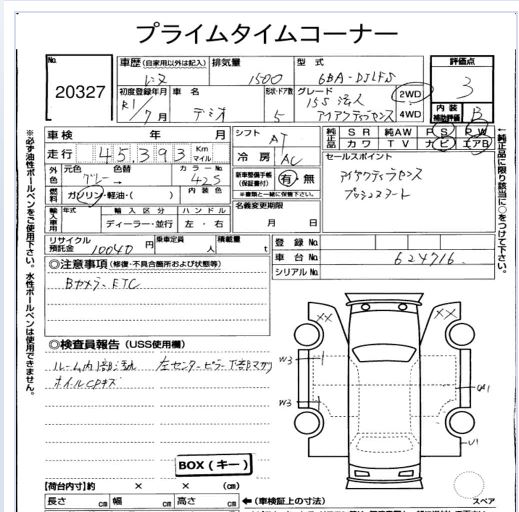 プライムタイムコーナー
No. 20327
車歴 (自家用以外は記入) レンタ
排気量 1500
型式 6BA-DJLFS
評価点 3
初度登録年月 R1/7月
車名 デミオ
形状・ドア数 5
グレード 15S
2WD
4WD
内装補助評価 B
車検 年 月
走行 45,393 Km マイル
シフト AT
冷房 AC
純正品 SR 純AW PS PW
カワ TV ナビ エアB
外色 元色 グレー 色替
カラーNo. 42S
燃料 ガソリン・軽油・( )
内装色
新車整備手帳(保証書付) 有・無
※書類と一緒に保管下さい。
セールスポイント
アイアクティブセンス
プッシュスタート
輸入車用 年式 輸入区分 ディーラー・並行
ハンドル 左・右
名義変更期限 月 日
リサイクル預託金 10040円
乗車定員 人
積載量 t
登録No.
車台No. 624716
シリアルNo.
◎注意事項 (修復・不具合箇所および状態等)
Bカメラ ETC
◎検査員報告 (USS使用欄)
ホイルCPキズ
BOX(キー)
XX
XX
W3
W3
U1
【荷台内寸】約 × × (cm)
長さ cm 幅 cm 高さ cm
←(車検証上の寸法)
スペア
※必ず油性ボールペンをご使用下さい。水性ボールペンは使用できません。
←純正品に限り該当に○をつけて下さい。